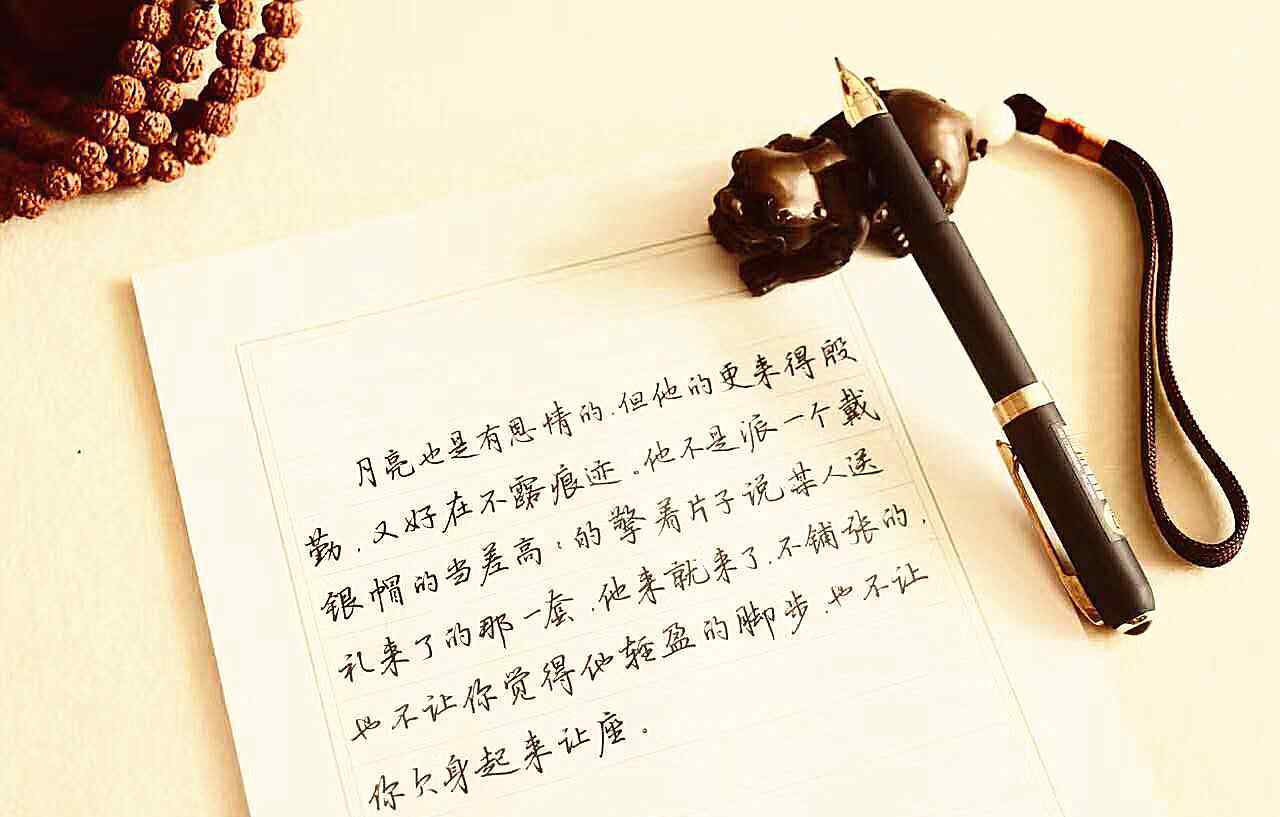 月亮也是有恩情的，但他的更来得殷
勤，又好在不露痕迹。他不是派一个戴
银帽的当差高：的擎着片子说某人送
礼来了的那一套，他来就来了，不铺张的，
也不让你觉得他轻盈的脚步，也不让
你欠身起来让座。